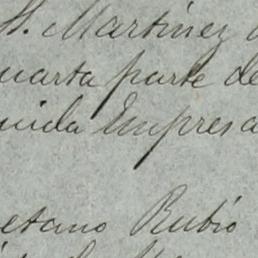 H. Martinez
uarta parte de
uida Empresa
etano Rubio